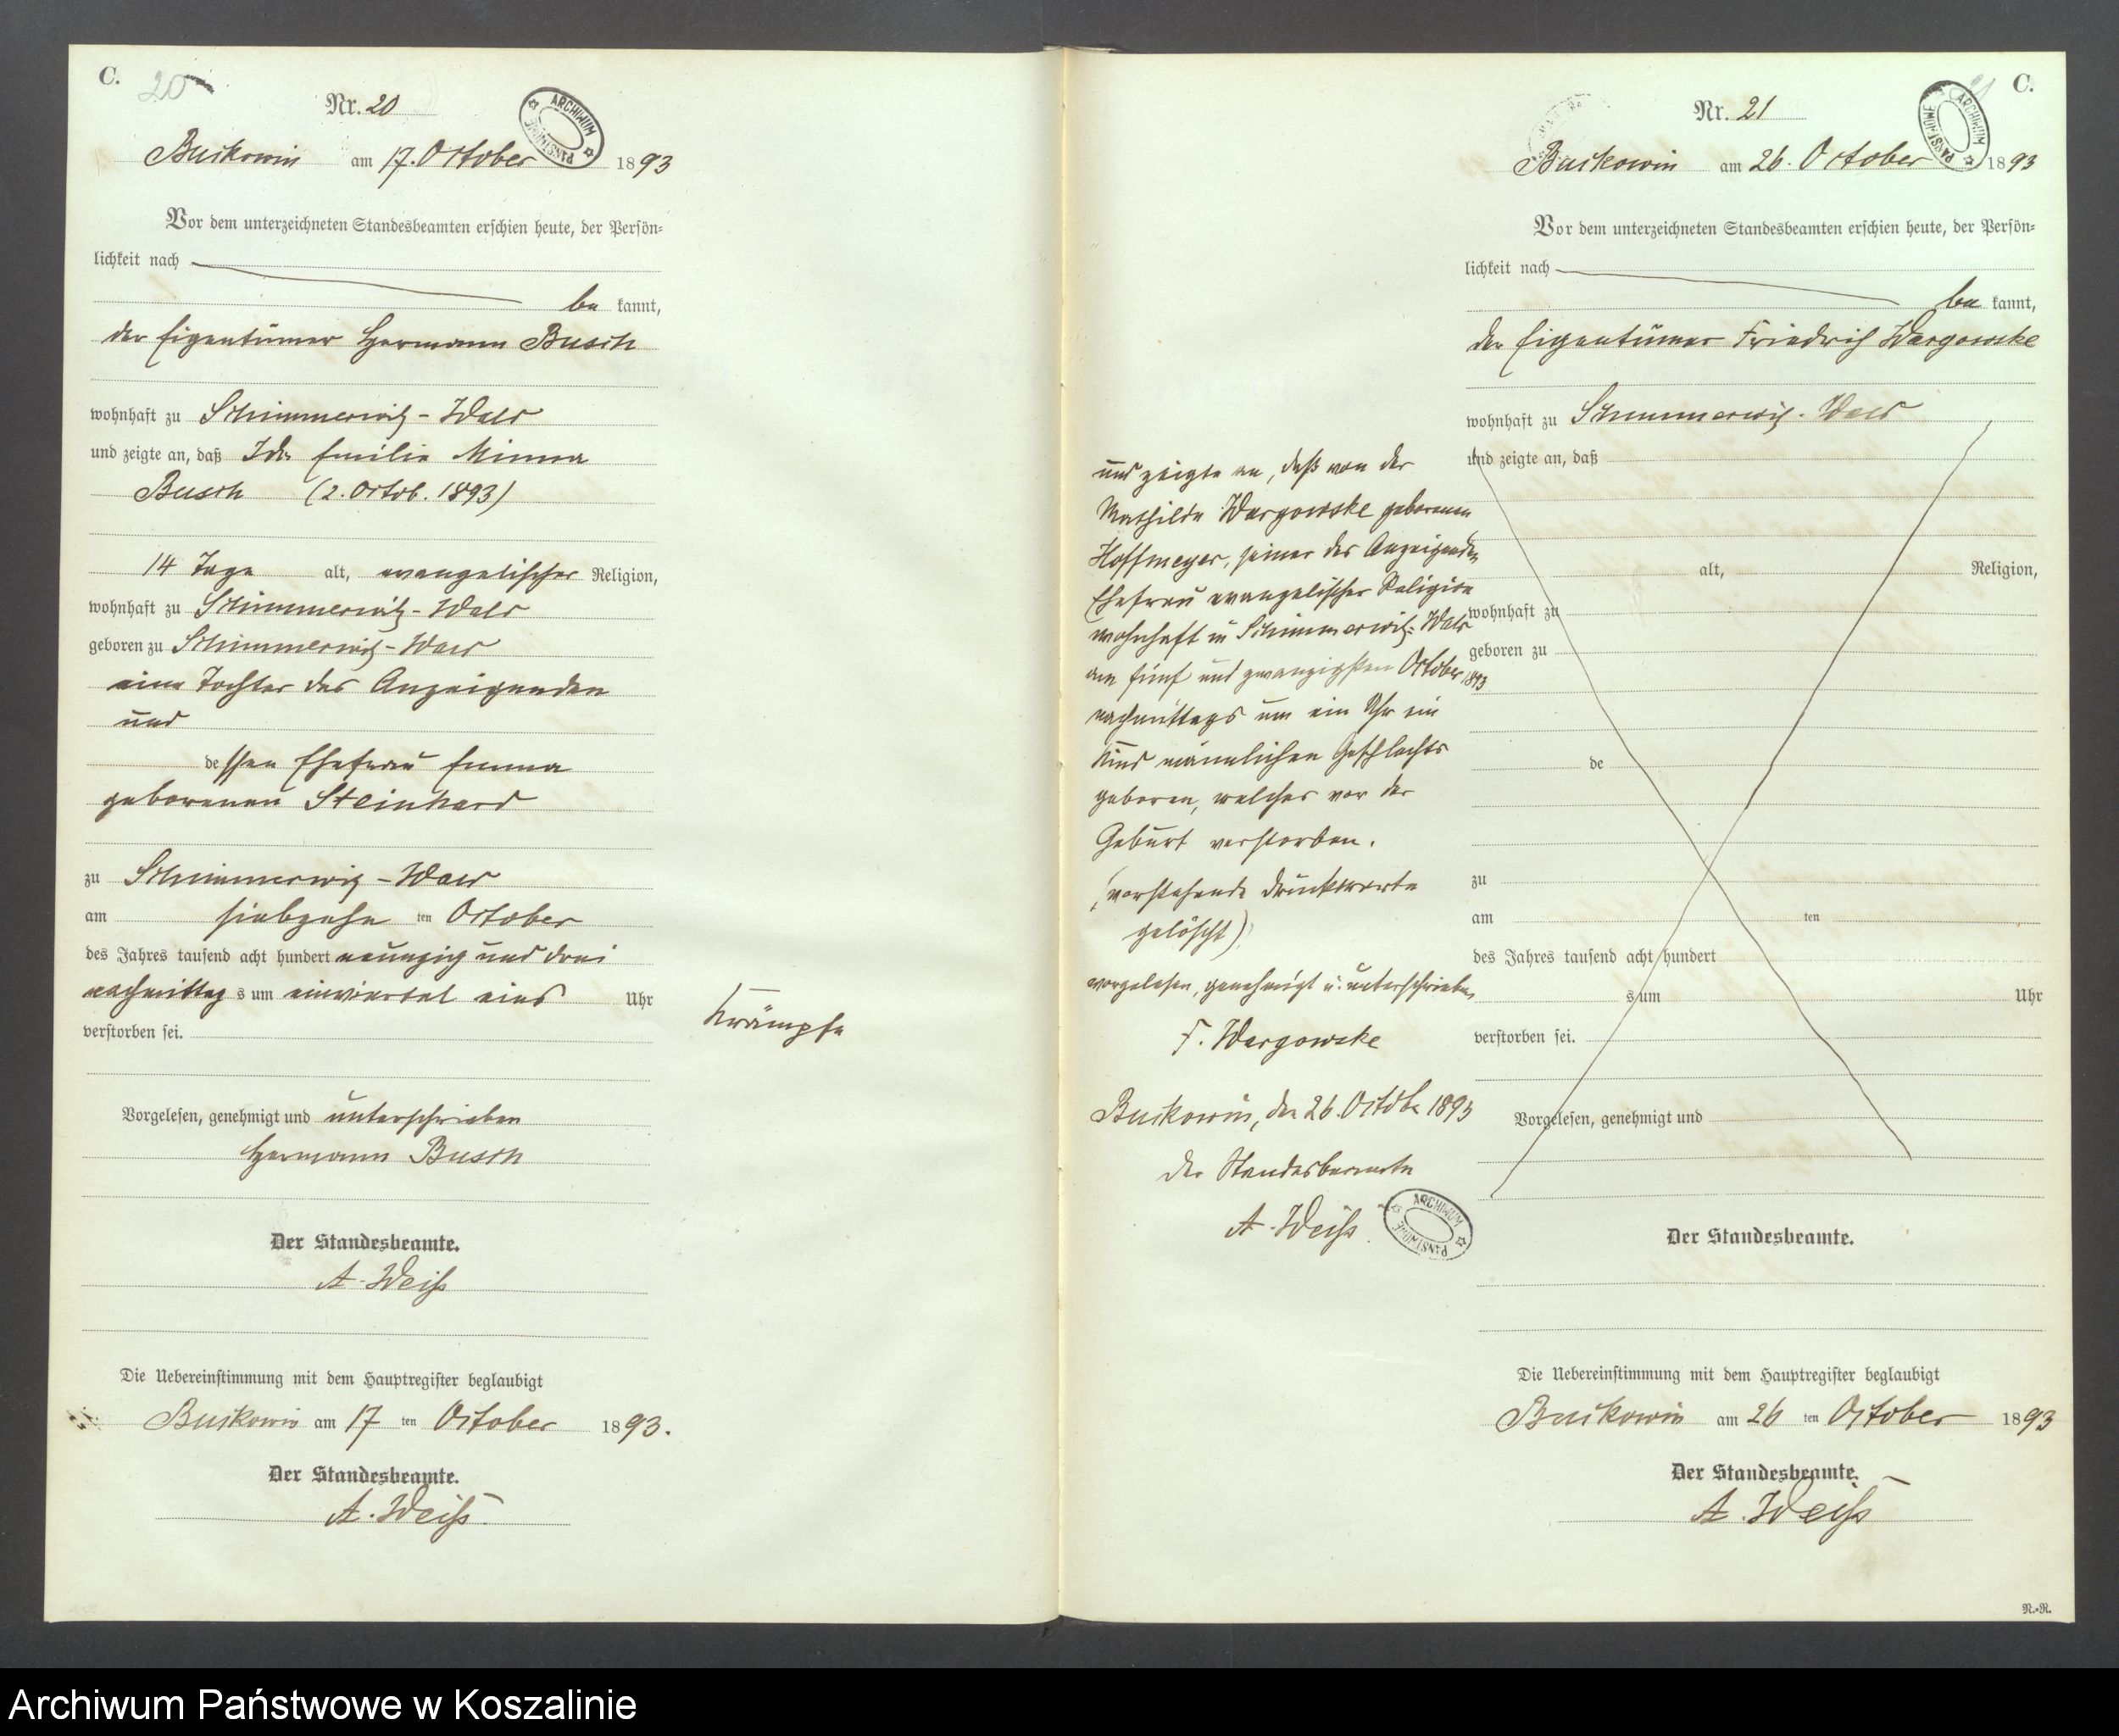 C.
20
Nr. 20
ARCHIWUM PAŃSTWOWE
Buckowin am 17. October 1893
Vor dem unterzeichneten Standesbeamten erschien heute, der Persön=
lichkeit nach
be kannt,
der Eigentümer Hermann Busch
wohnhaft zu Schimmerwitz - Wald
und zeigte an, daß Ida Emilie Minna
Busch (2. Octob. 1893)
14 Tage alt, evangelischer Religion,
wohnhaft zu Schimmerwitz - Wald
geboren zu Schimmerwitz - Wald
eine Tochter des Anzeigenden
und
dessen Ehefrau Emma
geborenen Steinhard
zu Schimmerwitz - Wald
am siebzehn ten October
des Jahres tausend acht hundert neunzig und drei
nachmittag s um einviertel eins Uhr
verstorben sei.
Krämpfe
Vorgelesen, genehmigt und unterschrieben
Hermann Busch
Der Standesbeamte.
A. Weiß
Die Uebereinstimmung mit dem Hauptregister beglaubigt
Buckowin am 17 ten October 1893.
Der Standesbeamte.
A. Weiß
C.
21
Nr. 21
ARCHIWUM PAŃSTWOWE
Buckowin am 26. October 1893
Vor dem unterzeichneten Standesbeamten erschien heute, der Persön=
lichkeit nach
be kannt,
der Eigentümer Friedrich Wargowske
wohnhaft zu Schimmerwitz - Wald
und zeigte an, daß von der
Mathilde Wargowske geborenen
Hoffmeyer, seiner des Anzeigenden
Ehefrau evangelischer Religion
wohnhaft in Schimmerwitz - Wald
am fünf und zwanzigsten October 1893
nachmittags um ein Uhr ein
Kind männlichen Geschlechts
geboren, welches vor der
Geburt verstorben.
(vorstehende Druckworte
gelöscht)
vorgelesen, genehmigt u. unterschrieben
F. Wargowske
Buckowin, den 26. Octobr 1893
Der Standesbeamte
A. Weiß
ARCHIWUM PAŃSTWOWE
und zeigte an, daß
alt, Religion,
wohnhaft zu
geboren zu
de
zu
am ten
des Jahres tausend acht hundert
s um Uhr
verstorben sei.
Vorgelesen, genehmigt und
Der Standesbeamte.
Die Uebereinstimmung mit dem Hauptregister beglaubigt
Buckowin am 26 ten October 1893
Der Standesbeamte.
A. Weiß
N.-R.
Archiwum Państwowe w Koszalinie